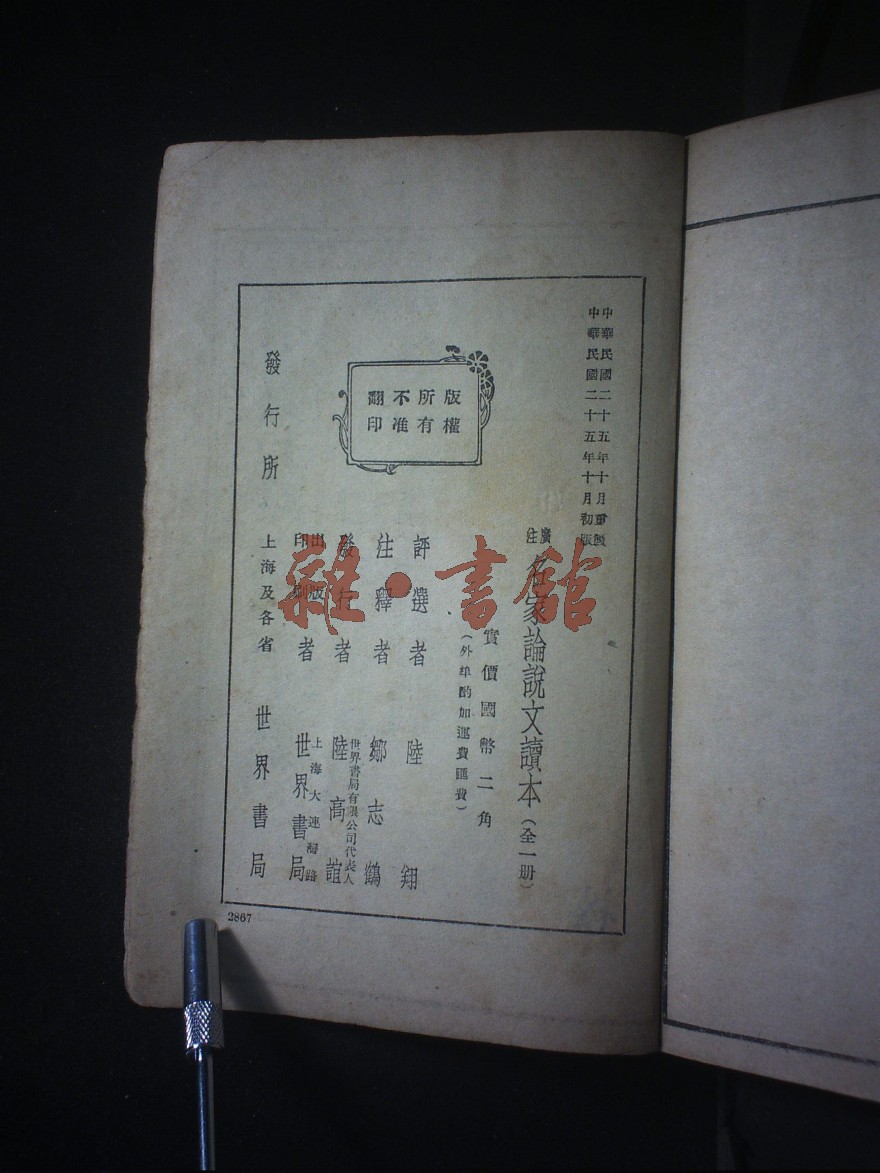 中華民國二十五年十月重製
中華民國二十五年十月初版
廣注 名家論說文讀本（全一册）
實價國幣二角
（外埠酌加運費匯費）
版權所有不准翻印
評選者 陸翔
注釋者 鄒志鶴
發行者 世界書局有限公司代表人 陸高誼
出版印刷者 上海大連灣路 世界書局
發行所 上海及各省 世界書局
2867
雜·書館